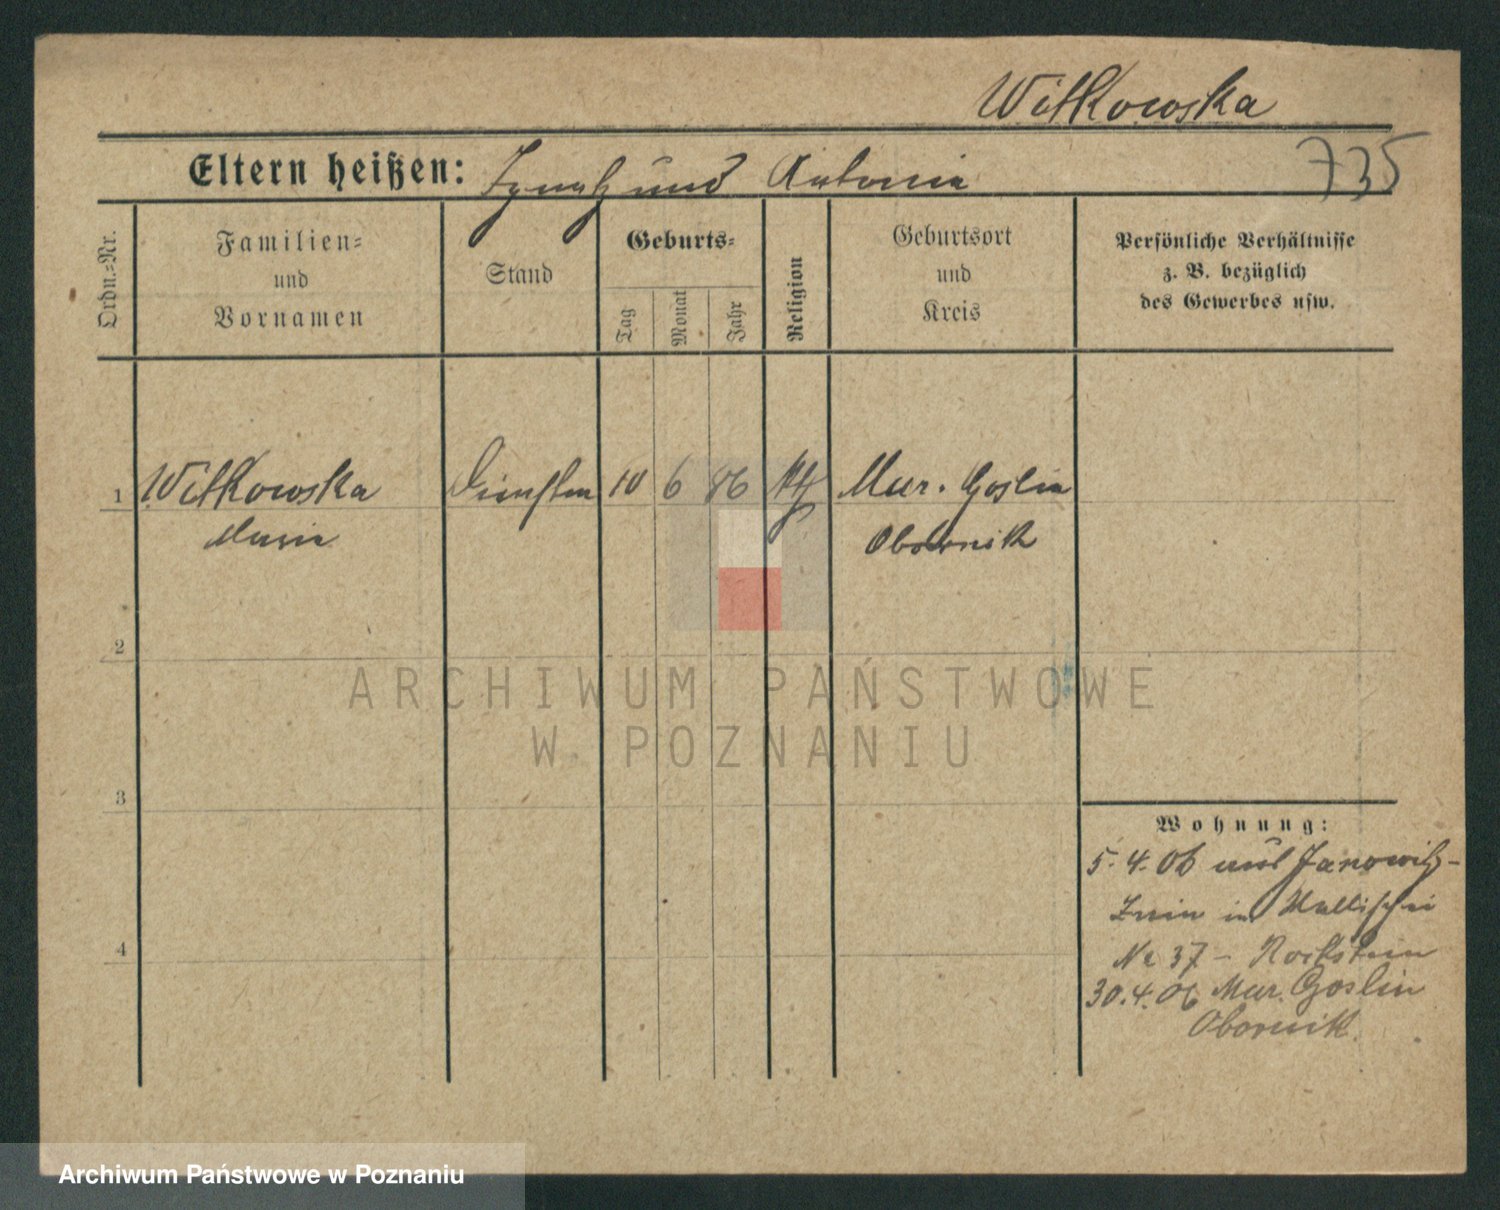 Witkowska
Eltern heißen: Ignatz und Antonie
735
Ordn.-Nr.
Familien-
und
Vornamen
Stand
Geburts-
Tag
Monat
Jahr
Religion
Geburtsort
und
Kreis
Persönliche Verhältnisse
z. B. bezüglich
des Gewerbes usw.
1 Witkowska 10 6 86 kth Mur. Goslin
Maria Obornik
2
3
4
Wohnung:
5.4.06 aus Janowitz-
Znin in Wallischei
No 37 -
30.4.06 Mur. Goslin
Obornik
ARCHIWUM PAŃSTWOWE
W POZNANIU
Archiwum Państwowe w Poznaniu